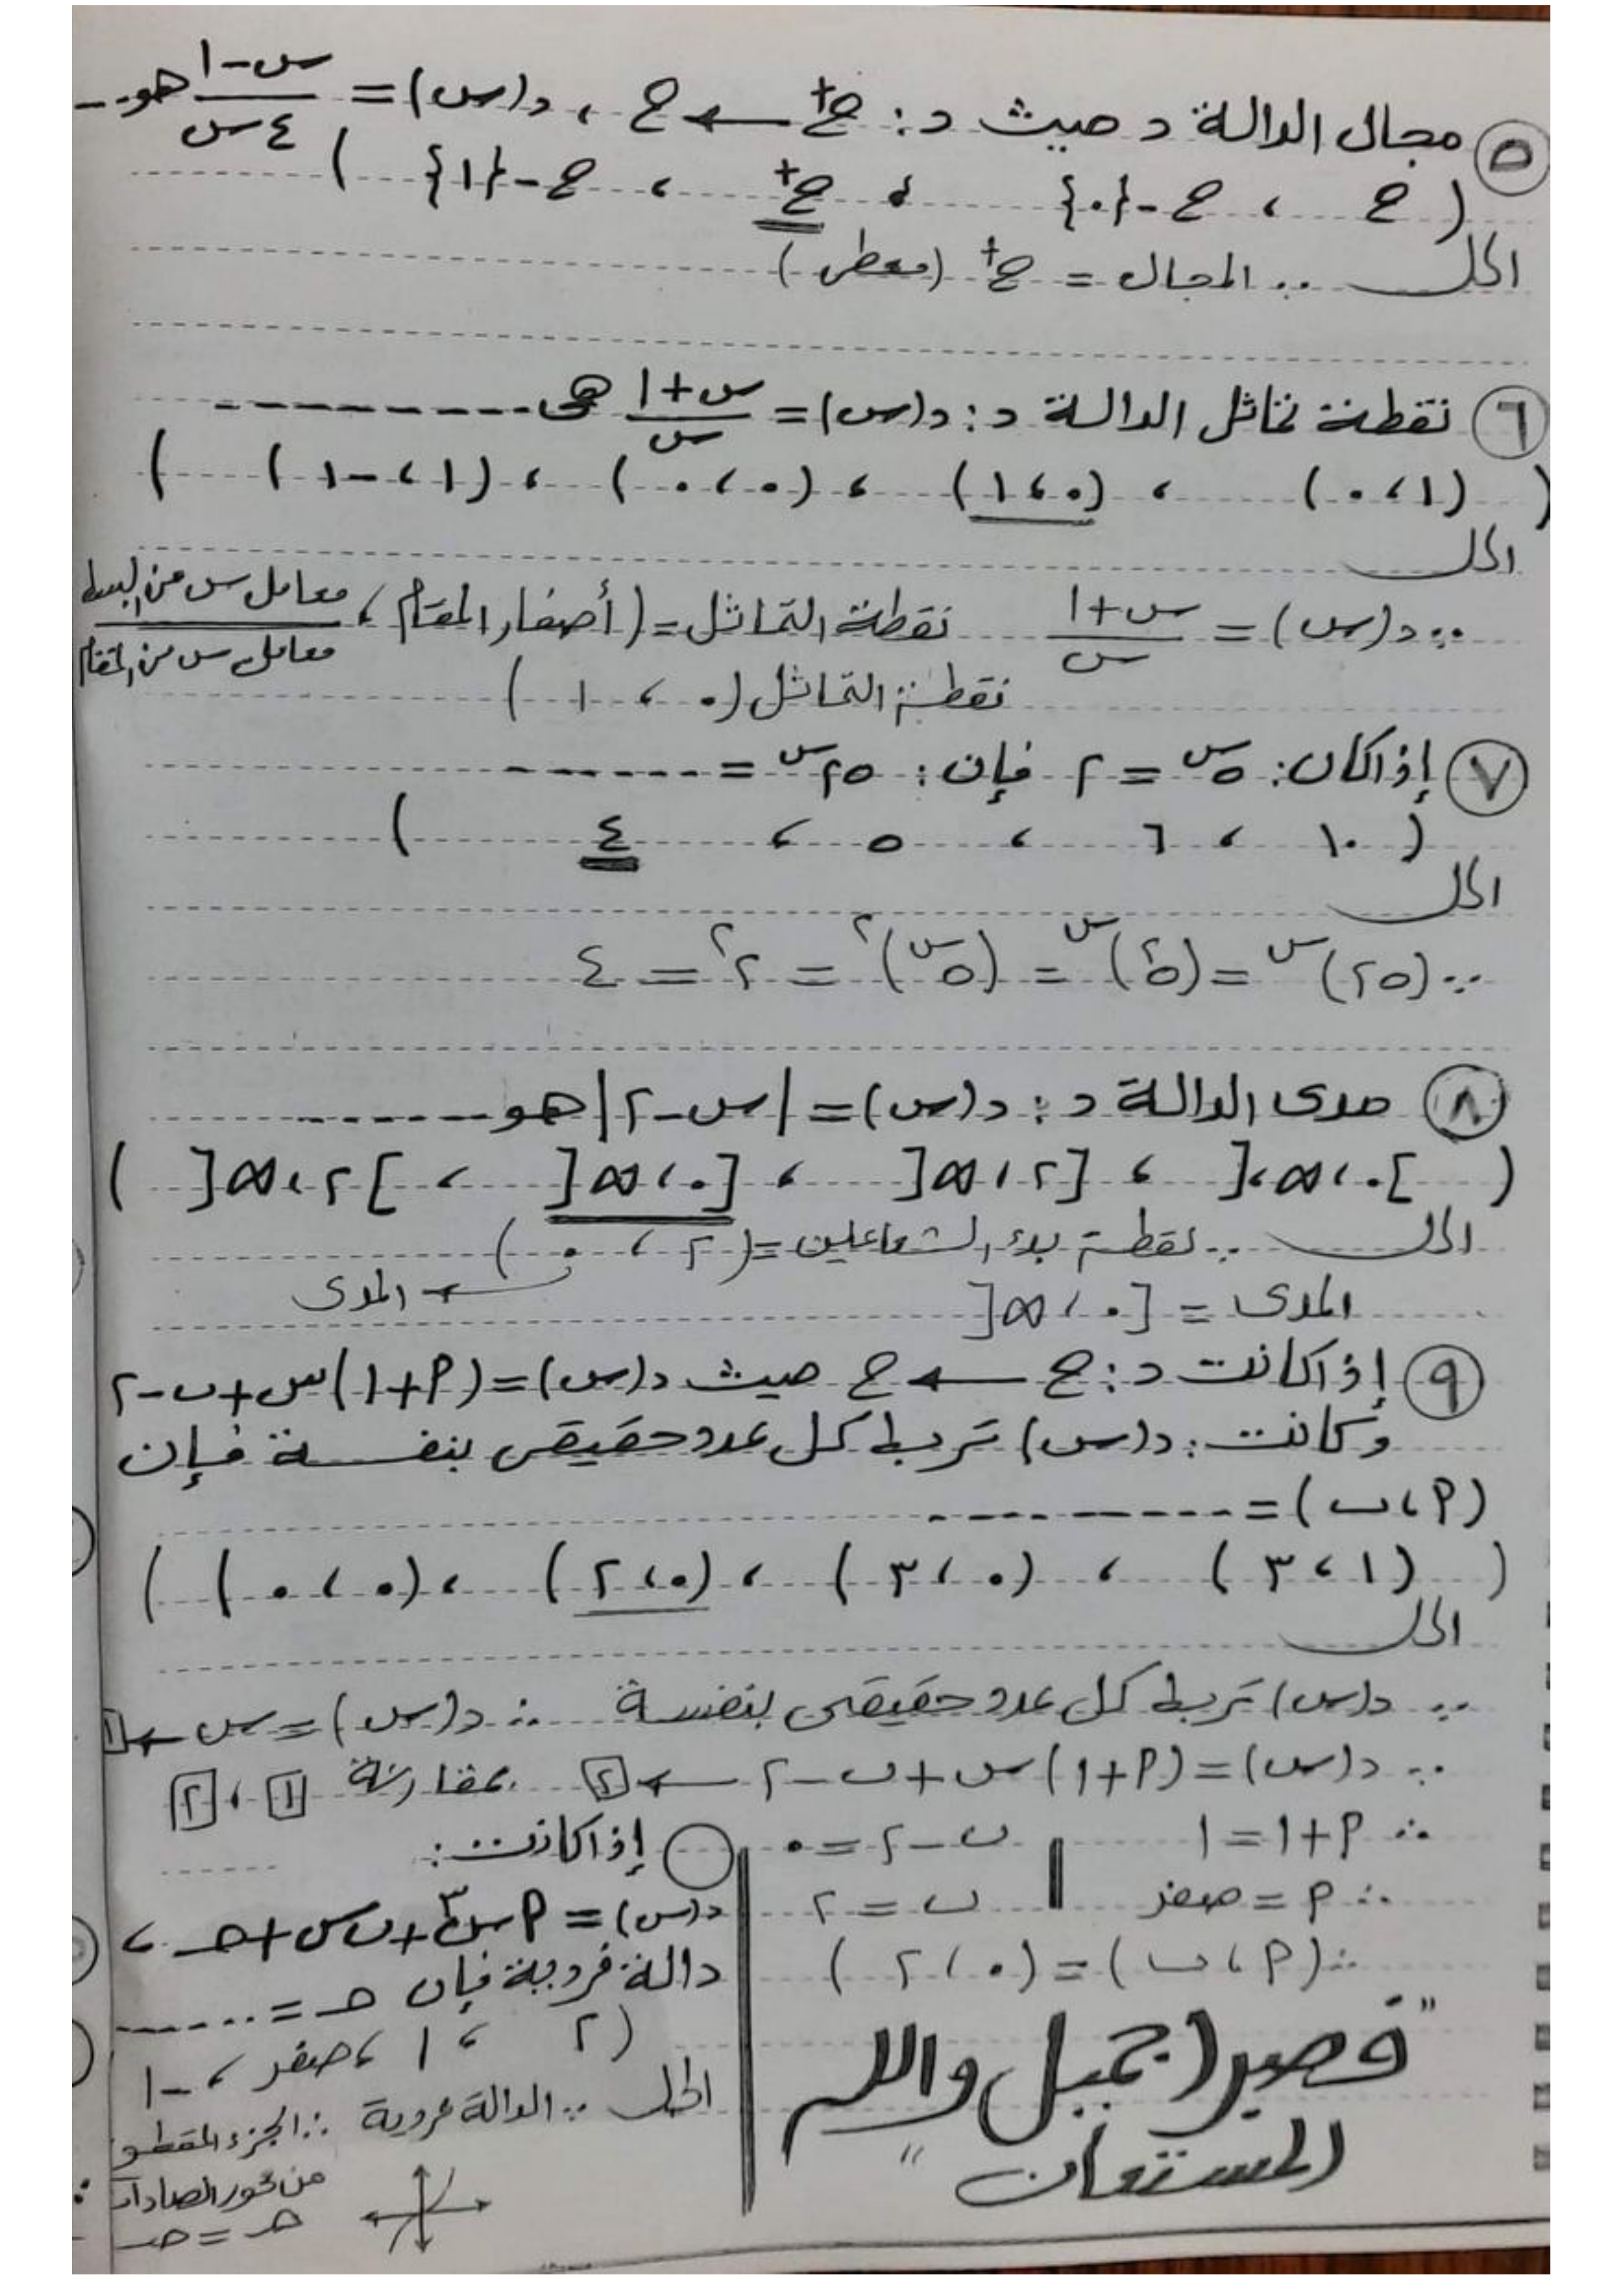 ٥ مجال الدالة د حيث د: ح+ ← ح ، د(س) = (س-١)/(٤س) هو...
( ح ، ح-{٠} ، ح+ ، ح-{١} )
الحل ∵ المجال = ح+ (معطى)
٦ نقطة تماثل الدالة د: د(س) = (س+١)/س هى ---------
( (١،٠) ، (٠،١) ، (٠،٠) ، (١،-١) )
الحل
∵ د(س) = (س+١)/س نقطة التماثل = (أصفار المقام ، معامل س من البسط/معامل س من المقام
نقطة التماثل (٠ ، ١)
٧ إذا كان: ٥^س = ٢ فإن: ٢٥^س = -------
( ١٠ ، ٦ ، ٥ ، ٤ )
الحل
∵ (٢٥)^س = (٥^٢)^س = (٥^س)^٢ = ٢^٢ = ٤
٨ مدى الدالة د: د(س) = |س-٢| هو -------
( ]٠،∞[ ، [٢،∞[ ، [٠،∞[ ، ]٢،∞[ )
الحل ∵ نقطة بدء الشعاعين = (٢ ، ٠)
← المدى
المدى = [٠،∞[
٩ إذا كانت د: ح ← ح حيث د(س) = (١+٢)س+ب-٢
وكانت: د(س) تربط كل عدد حقيقى بنفسة فإن
(أ،ب) = ---------
( (١،٣) ، (٠،٣) ، (٠،٢) ، (٠،٠) )
الحل
∵ د(س) تربط كل عدد حقيقى بنفسة ∴ د(س) = س ← ١
∵ د(س) = (أ+١)س+ب-٢ ← ٢ بمقارنة ١ ، ٢
∴ أ+١=١ ب-٢=٠
∴ أ = صفر ب = ٢
∴ (أ،ب) = (٠،٢)
"فصبر جميل والله
المستعان"
إذا كانت:
د(س) = أس^٣+ب س+حـ ،
دالة فردية فإن حـ = ------
(٢ ، ١ ، صفر ، -١
الحل ∵ الدالة فردية ∴ الجزء المقطو
من محور الصادات
حـ = صـ